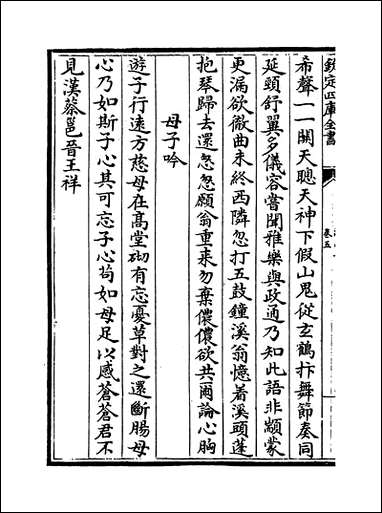 欽定四庫全書
卷五
希聲一一關天聰天神下假山鬼從玄鶴抃舞節奏同
延頸舒翼多儀容嘗聞雅樂與政通乃知此語非顓蒙
更漏欲徹曲未終西隣忽打五鼓鐘溪翁憶着溪頭蓬
抱琴歸去還怱怱願翁重来勿棄儂儂欲共爾論心胸
母子吟
遊子行逺方慈母在髙堂砌有忘憂草對之還斷腸母
心乃如斯子心其可忘子心苟如母足以感蒼蒼君不
見漢蔡邕晉王祥